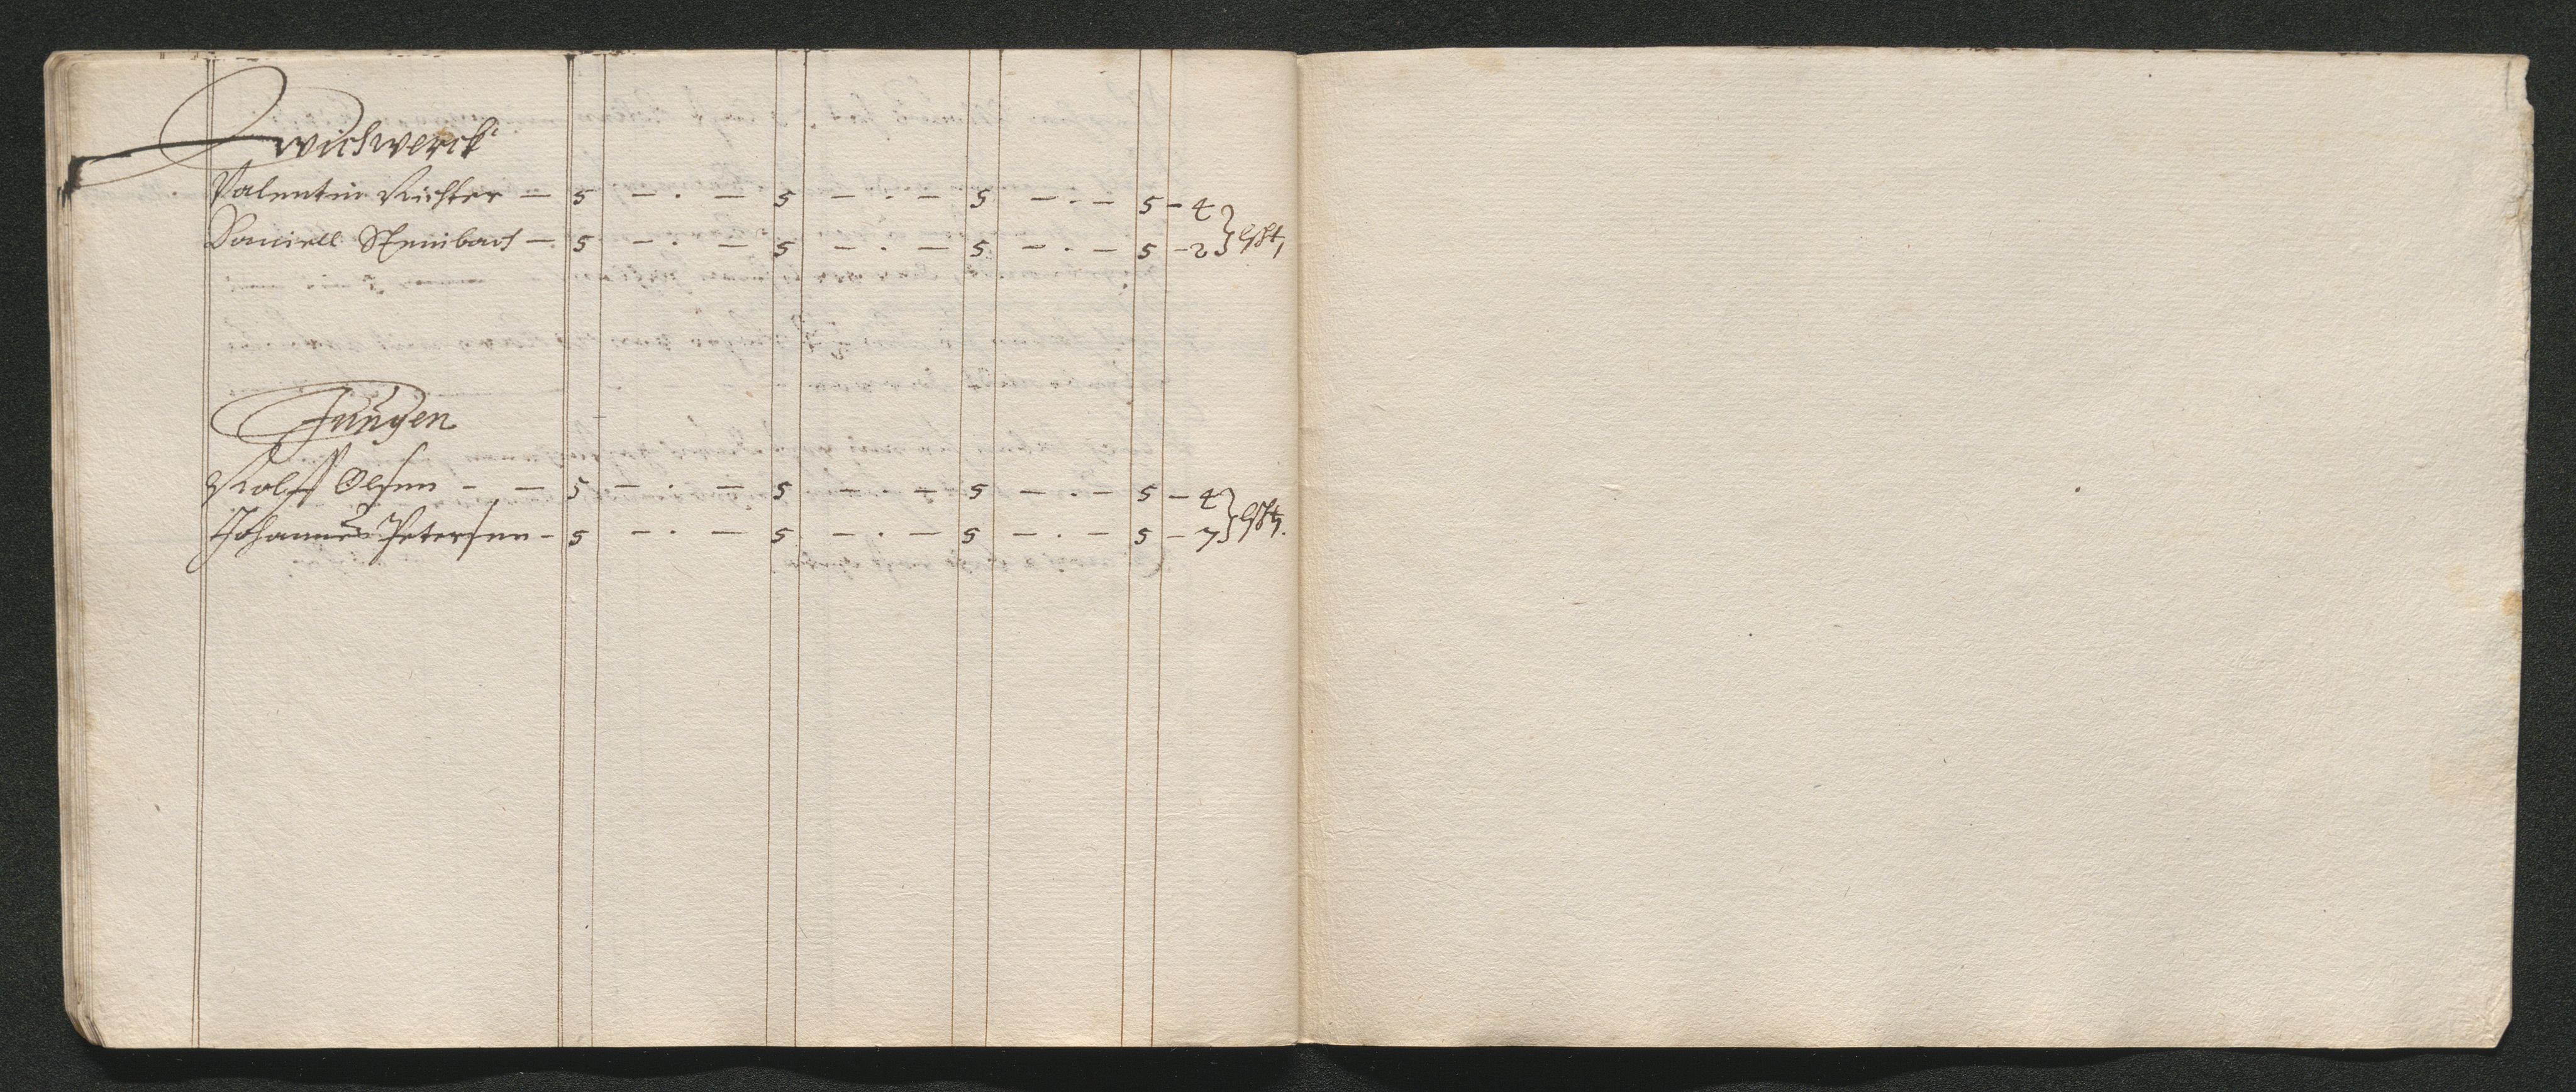 Zwichwerck
Valentin Richter — 5 — . — 5 — . — 5 — . — 5 – 4
Daniell Steinbach — 5 — . — 5 — . — 5 — . — 5 – 2
Jungen
Rolff Olsen - — 5 — . — 5 — . — 5 — . — 5 – 4
Johannes Petersen – 5 — . — 5 — . — 5 — . — 5 – 7